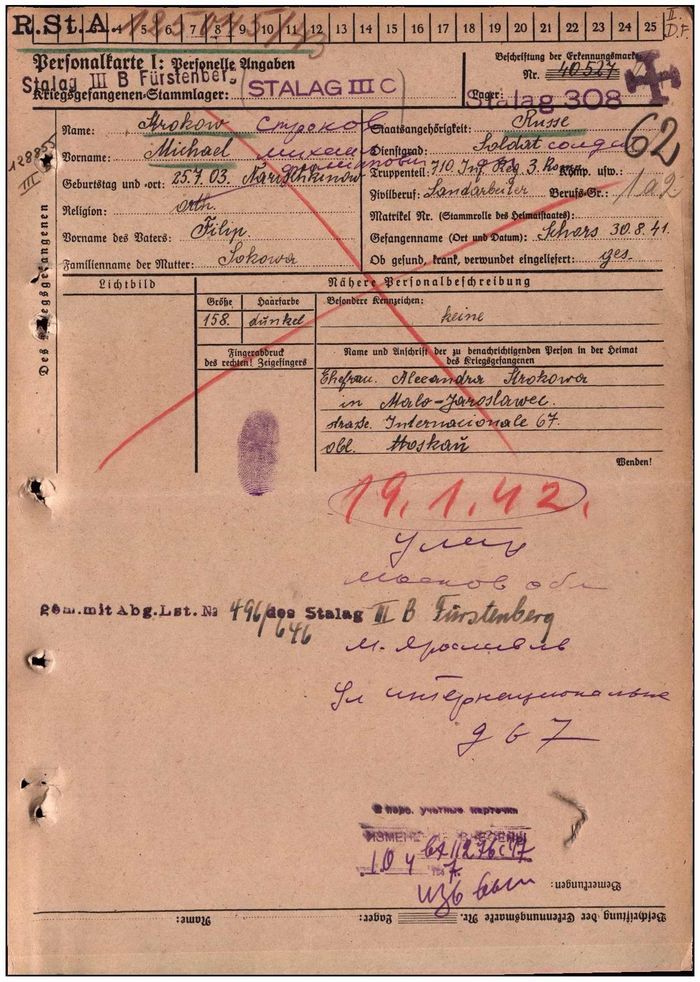 R.St.A.
4 5 6 7 8 9 10 11 12 13 14 15 16 17 18 19 20 21 22 23 24 25
II.
D.F.
Personalkarte I: Personelle Angaben
Beschriftung der Erkennungsmarke
Nr. 10527
Stalag III B Fürstenberg
Kriegsgefangenen-Stammlager:
STALAG III C
Lager:
Stalag 308
62
128855
III
Des Kriegsgefangenen
Name: Strokow Строков
Vorname: Michael Михаил Филиппович
Geburtstag und -ort: 25.7.03. Narischkinow
Religion: orth.
Vorname des Vaters: Filip.
Familienname der Mutter: Sokowa
Staatsangehörigkeit: Russe
Dienstgrad: Soldat солдат
Truppenteil: 710 Inf. Reg. 3. Komp. usw.:
Zivilberuf: Landarbeiter Berufs-Gr.: 1a2
Matrikel Nr. (Stammrolle des Heimatstaates):
Gefangennahme (Ort und Datum): Schors 30.8.41.
Ob gesund, krank, verwundet eingeliefert: ges.
Lichtbild
Nähere Personalbeschreibung
Größe Haarfarbe
158. dunkel
Besondere Kennzeichen:
keine
Fingerabdruck
des rechten! Zeigefingers
Name und Anschrift der zu benachrichtigenden Person in der Heimat
des Kriegsgefangenen
Ehefrau. Alexandra Strokowa
in Malo-Jaroslawec.
strasse. Internacionale 67.
obl. Moskau
Wenden!
19.1.42.
Москов обл
gem.mit Abg.Lst.№ 496/646 des Stalag III B Fürstenberg
М. Ярославль
Ул интернациональна
д 67
В перс. учетные карточки
Bemerkungen:
Beschriftung der Erkennungsmarke Nr. Lager: Name: